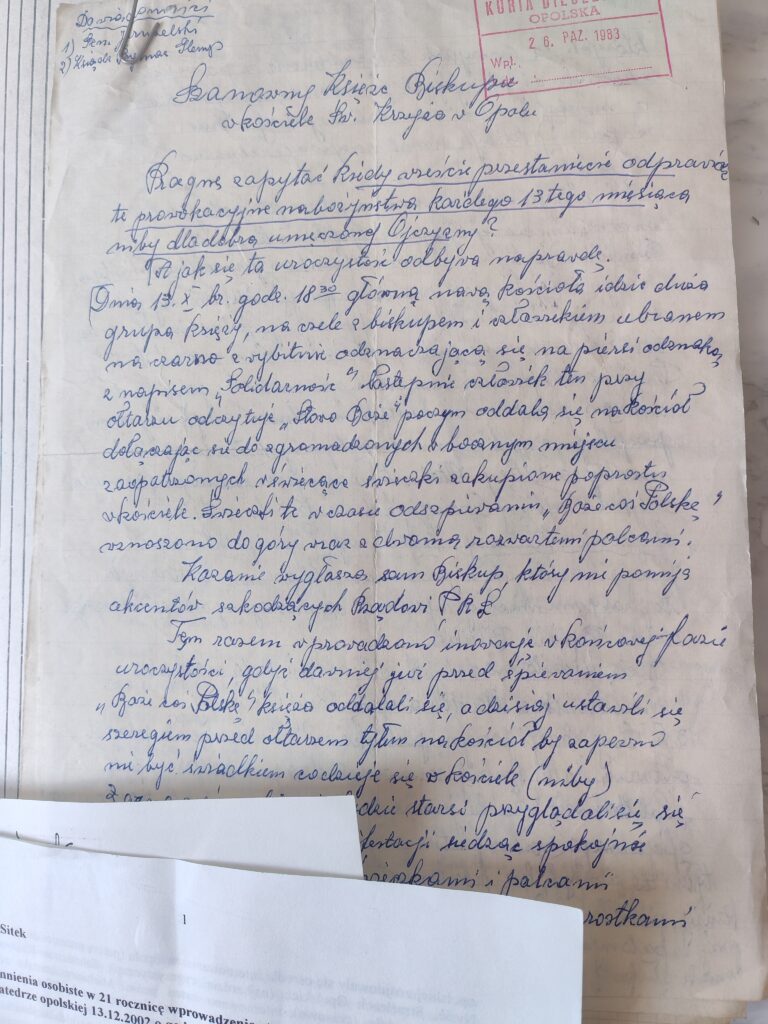 Do wiadomości
1) Gen. Jaruzelski
2) Ksiądz Prymas Glemp
KURIA DIECEZ
OPOLSKA
26. PAŹ. 1983
Wpł.
Szanowny Księże Biskupie
w kościele Św. Krzyża w Opolu
Pragnę zapytać kiedy wreście przestaniecie odprawiać
te provokacyjne nabożyństwa każdego 13 tego miesiąca
niby dla dobra umęczonej Ojczyzny?
A jak się ta uroczystość odbywa naprawdę.
Dnia 13.X br. godz. 18 30 główną nawą kościoła idzie duża
grupa księży, na czele z biskupem i człowiekiem ubranem
na czarno z wybitnie odznaczającą się na piersi odznaką
z napisem „Solidarność". Następnie człowiek ten przy
ołtarzu odczytuje „Słowo Boże" poczym oddala się na kościół
dołączając sie do zgromadzonych w bocznym miejscu
zaopatrzonych w świecące świeczki zakupione poprostu
w kościele. Świeczki te w czasie odspiewania „Boże coś Polskę"
wznoszono do góry wraz z dwoma rozwartemi palcami.
Kazanie wygłasza sam Biskup, który nie pomija
akcentów szkodzących Rządowi PRL
Tym razem wprowadzono inowacje w końcowej fazie
uroczystości, gdyż dawniej już przed śpiewaniem
„Boże coś Polskę" księża oddalali się, a dzisiaj ustawili się
szeregiem przed ołtarzem tyłem na kościół by zapewne
nie być świadkiem co dzieje się w kościele (niby)
ludzie starsi przyglądali się
festacji siedząc spokojnie
świeczkami i palcami
rostkami
1
Sitek
mnienia osobiste w 21 rocznicę wprowadzenia
atedrze opolskiej 13.12.2002 o